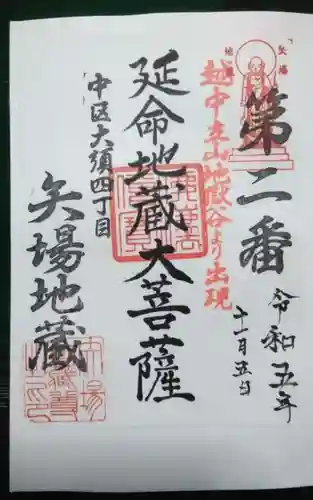 矢場
地蔵
第二番
令和五年
十一月五日
越中立山地獄谷より出現
延命地蔵大菩薩
中区大須四丁目
矢場地蔵